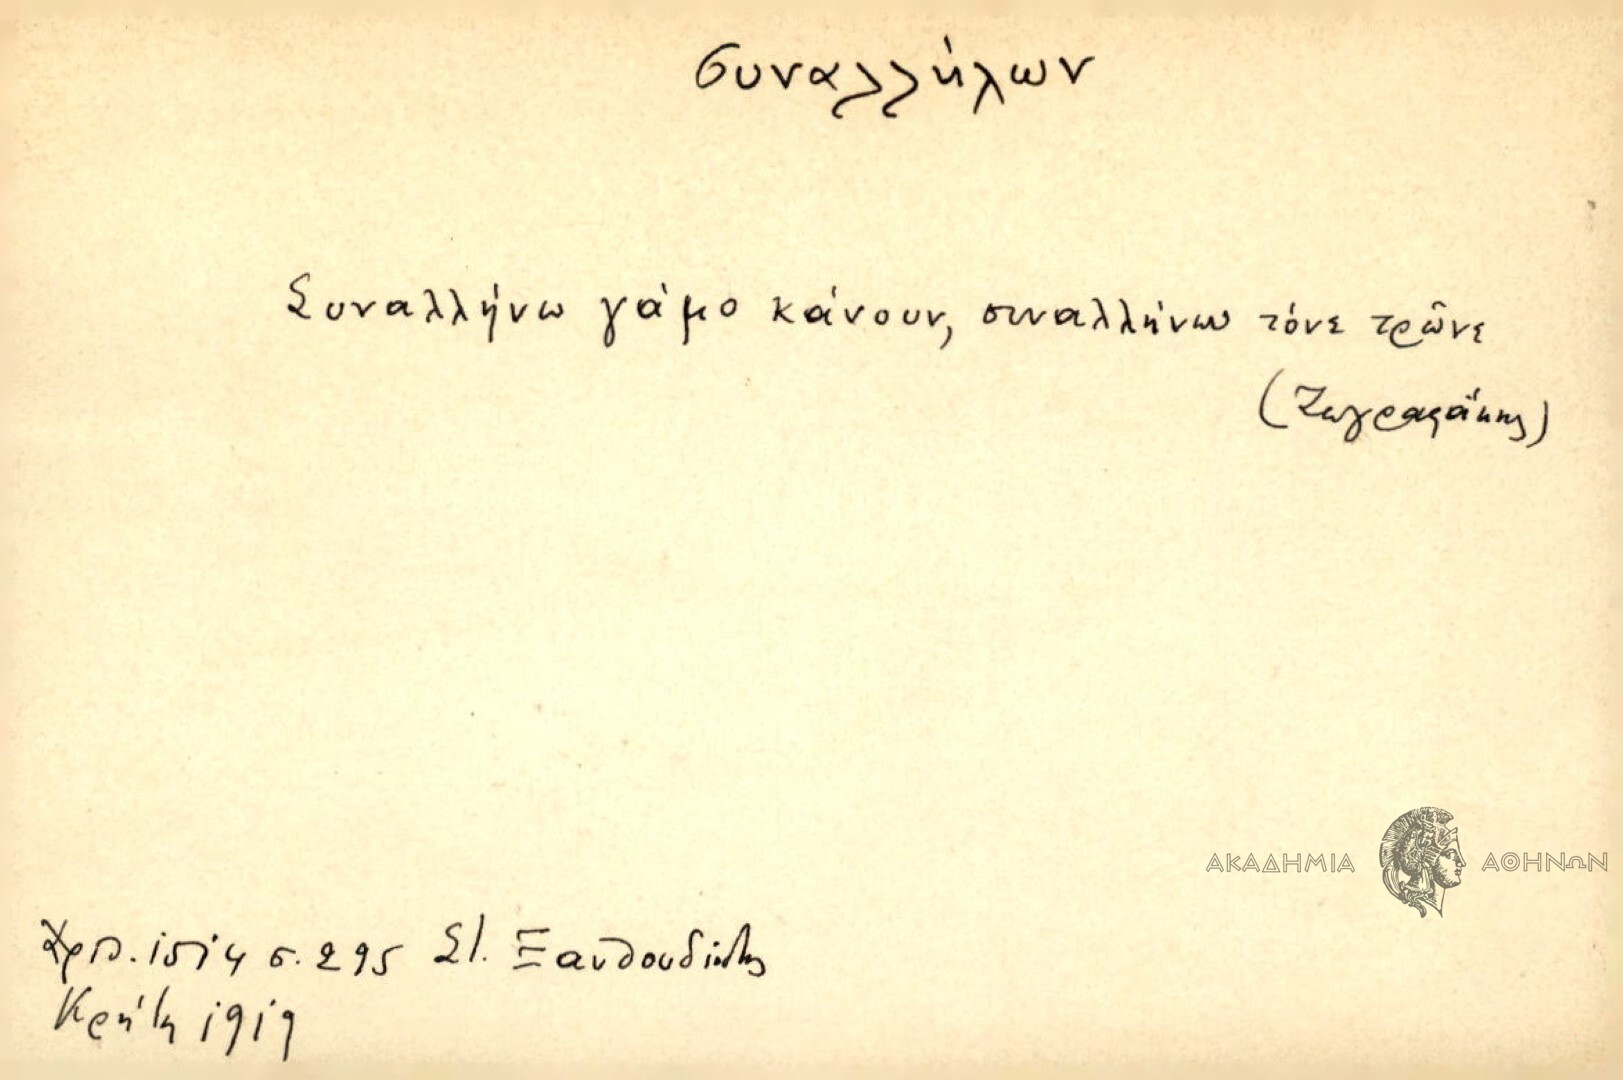 συναλλήλων
Συναλλήνω γάμο κάνουν, συναλλήνω τόνε τρῶνε
(Ζωγραφάκης)
Χρφ. 1514 σ. 295 Στ. Ξανθουδίδης
Κρήτη 1919
ΑΚΑΔΗΜΙΑ ΑΘΗΝΩΝ